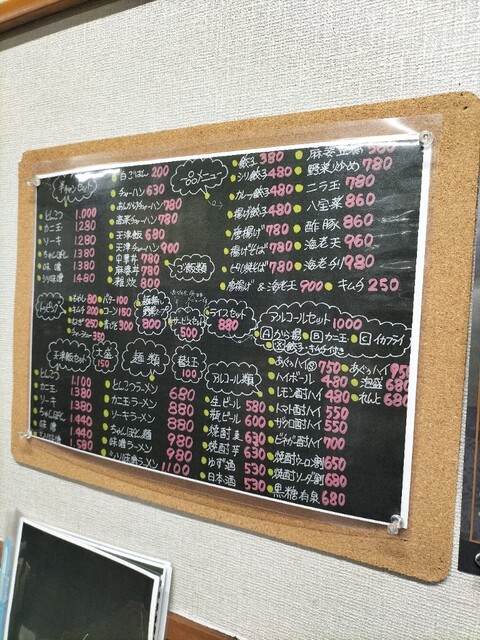 チャンセット
とんこつ 1,000
カニ玉 1,280
ソーキ 1,280
ちゃんぽん 1,380
味噌 1,380
シソ味噌 1,480
白ごはん 200
チャーハン 630
あんかけチャーハン 780
高菜チャーハン 780
天津飯 680
天津チャーハン 900
中華丼 780
麻婆丼 780
雑炊 800
ご飯類
一品メニュー
餃子 380
シソ餃子 480
カレー餃子 480
揚げ餃子 480
唐揚げ 780
揚げそば 780
ピリ辛そば 780
唐揚げ&海老玉 900
麻婆豆腐
野菜炒め 780
ニラ玉 780
八宝菜 860
酢豚 860
海老天 960
海老チリ 980
キムチ 250
トッピング
もやし 80
キムチ 200
ねぎ 250
チャーシュー 350
バター 100
コーン 150
煮たまご 300
800
サービスセット 500
ライスセット 880
アルコールセット 1000
Aから揚 Bカニ玉 Cイカフライ
天津飯セット
とんこつ 1,100
カニ玉 1,380
ソーキ 1,380
ちゃんぽん 1,480
味噌 1,480
シソ味噌 1,580
大盛 150
麺類
とんこつラーメン 680
カニ玉ラーメン 880
ソーキラーメン 880
ちゃんぽん麺 980
味噌ラーメン 980
シソ味噌ラーメン 1100
替玉 100
アルコール類
生ビール 580
瓶ビール 600
焼酎 麦 630
焼酎 芋 630
ゆず酒 530
日本酒 530
ハイボール 480
レモン酎ハイ 480
トマト酎ハイ 550
ザクロ酎ハイ 550
700
焼酎ウーロン割 650
焼酎ソーダ割 680
黒糖 680
あぐぅハイ 750
あぐぅハイ 950
泡盛 680
れんと 680